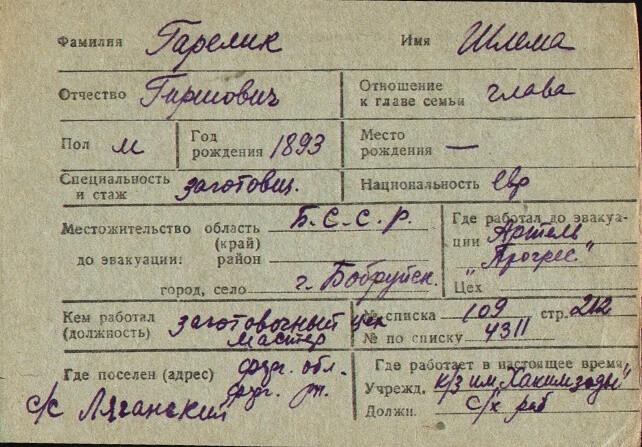 Фамилия Гарелик Имя Шлема
Отчество Гиршович Отношение к главе семьи глава
Пол м Год рождения 1893 Место рождения —
Специальность и стаж заготовщ. Национальность евр
Местожительство область (край) Б.С.С.р.
до эвакуации: район
город, село г. Бобруйск.
Где работал до эвакуации Артель
"Прогрес"
Цех
Кем работал (должность) заготовочный цех
мастер
№ списка 109 стр. 212
№ по списку 4311
Где поселен (адрес) ферг. обл.
ферг. рн.
с/с Ляганский
Где работает в настоящее время
Учрежд. к/з им. Хакимзоды"
Должн. с/х раб